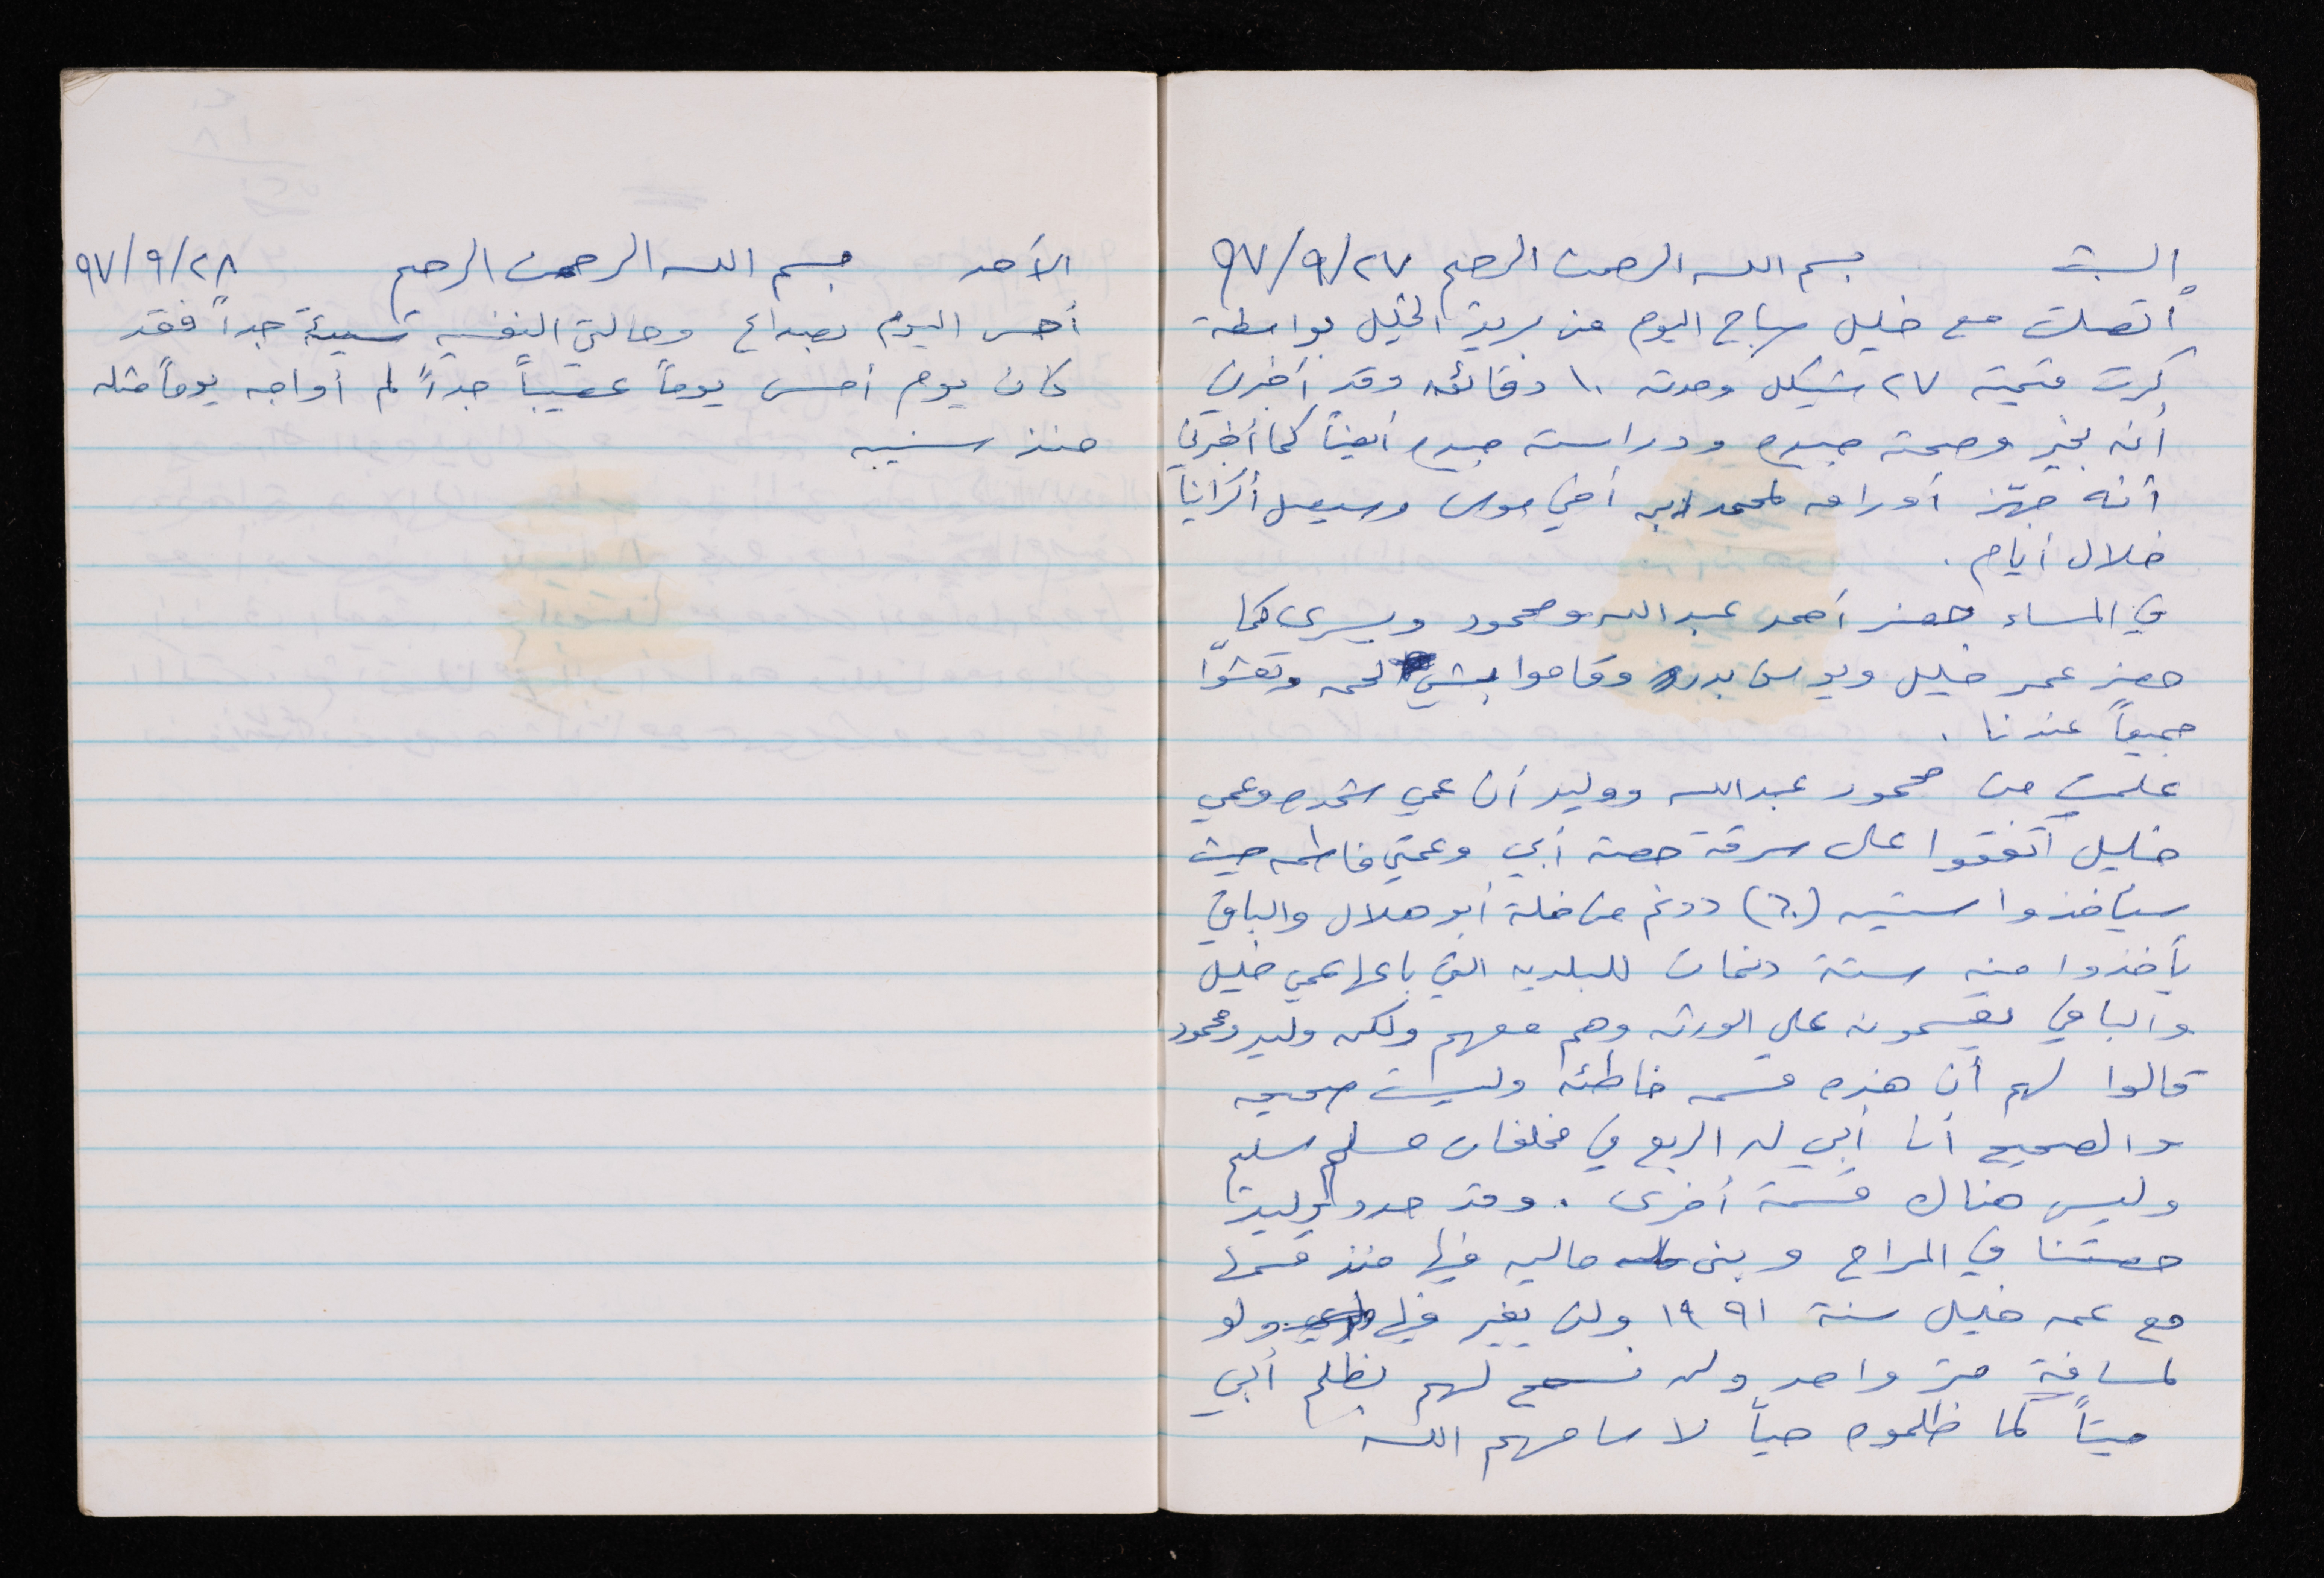 السبت بسم الله الرحمن الرحيم ٩٧/٩/٢٧
أتصلت مع خليل صباح اليوم من بريد الخليل بواسطة
كرت قيمته ٢٧ شيكل ومدته ١٠ دقائق وقد أخبرني
أنه بخير وصحته جيده ودراسته جيده أيضاً كما أخبرني
أنه جهز أوراق لمحمد ابن أخي موسى وسيصل أكرانيا
خلال أيام .
في المساء حضر أحمد عبد الله ومحمود ويسرى كما
حضر عمر خليل ويونس بدر وقاموا بشي لحمه وتعشوا
جميعاً عندنا .
علمت من محمود عبد الله ووليد أن عمي شحده وعمي
خليل أتفقوا على سرقة حصة أبي وعمتي فاطمه حيث
سيأخذوا ستين (٦٠) دونم من خلة أبو هلال والباقي
يأخذوا منه ستة دنمات للبلديه التي باعها عمي خليل
والباقي يقسمونه على الورثه وهم معهم ولكن وليد ومحمود
قالوا لهم أن هذه قسمه خاطئه وليست صحيحه
والصحيح أن أبي له الربع في مخلفات مسلم سليم
وليس هناك قسمة أخرى . وقد حدد وليد
حصتنا في المراح وبنى سلاسل فيها منذ قسمها
مع عمه خليل سنة ١٩٩١ ولن يغير فيها ولو
لمسافة متر واحد ولن نسمح لهم بظلم أبي
ميتاً كما ظلموه حياً لا سامحهم الله
الأحد بسم الله الرحمن الرحيم ٩٧/٩/٢٨
أحس اليوم بصداع وحالتي النفسيه سيئة جداً فقد
كان يوم أمس يوماً عصيباً جداً لم أواجه يوماً مثله
منذ سنين